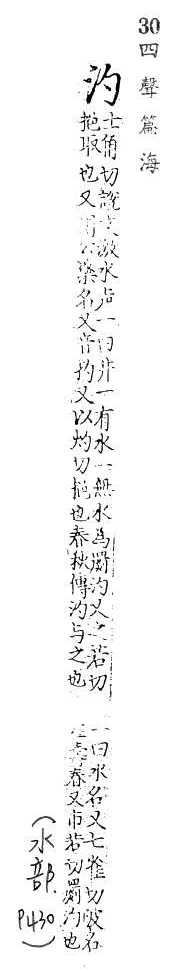 30 四聲篇海
汋
士角切說文激水声一曰井一有水一無水爲罽汋又之若切
挹取也又公樂名又音又以灼切挹也春秋傳汋与之也
一曰水名又七雀切陂名
壽春又市若切罽汋也
（水部，P430）